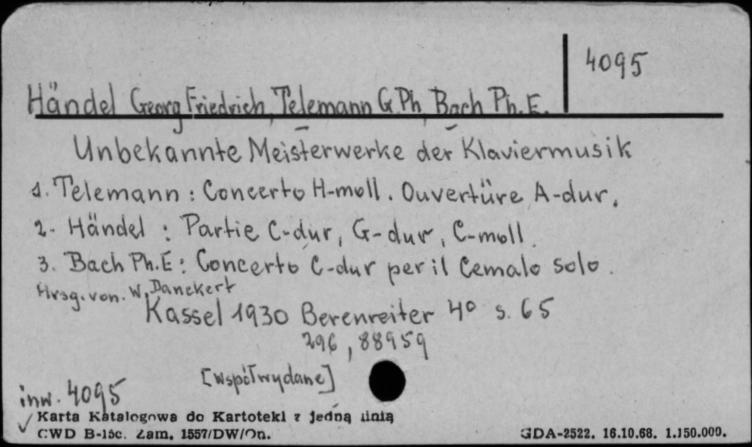 4095
Händel Georg Friedrich, Telemann G. Ph, Bach Ph. E.
Unbekannte Meisterwerke der Klaviermusik
1. Telemann : Concerto H-moll. Ouvertüre A-dur.
2. Händel : Partie C-dur, G-dur, C-moll.
3. Bach Ph. E : Concerto C-dur per il Cemalo solo.
Hrsg. von. W. Danckert
Kassel 1930 Berenreiter 4° s. 65
296, 88959
[współwydane]
inw. 4095
Karta Katalogowa do Kartoteki z jedną linią
CWD B-15c. Zam. 1557/DW/On. GDA-2522. 16.10.68. 1.150.000.